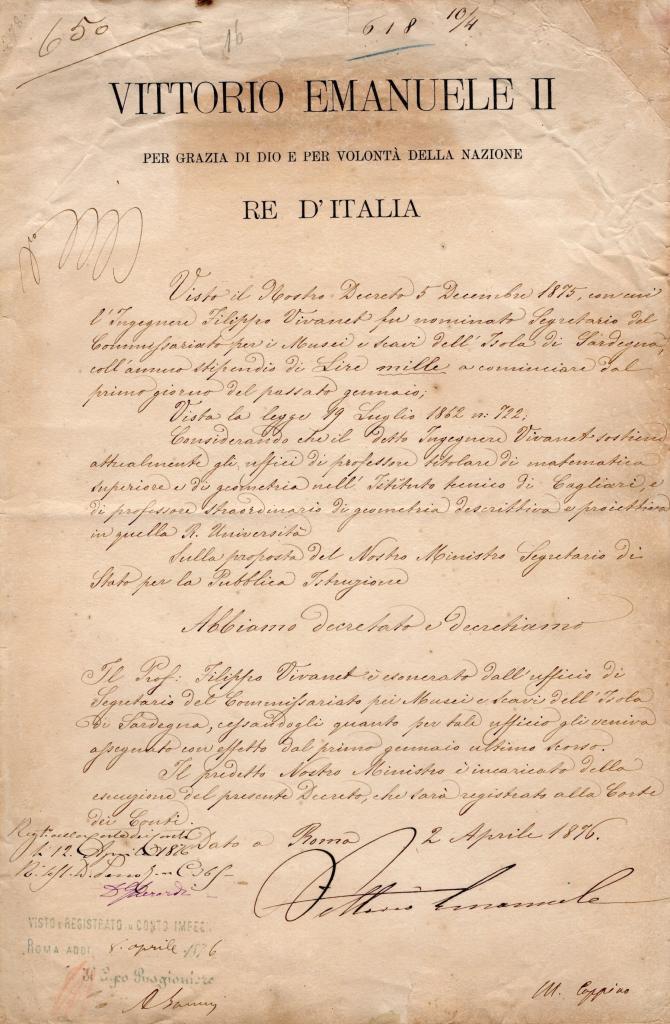 650
16
618 10/4
VITTORIO EMANUELE II
PER GRAZIA DI DIO E PER VOLONTÀ DELLA NAZIONE
RE D'ITALIA
Visto il Nostro Decreto 5 Decembre 1875, con cui
l'Ingegnere Filippo Vivanet fu nominato Segretario del
Commissariato per i Musei e scavi dell'Isola di Sardegna,
coll'annuo stipendio di Lire mille a cominciare dal
primo giorno del passato gennaio;
Vista la legge 19 Luglio 1862 n: 722;
Considerando che il detto Ingegnere Vivanet sostiene
attualmente gli uffici di professore titolare di matematica
superiore e di geometria nell'Istituto tecnico di Cagliari, e
di professore straordinario di geometria descrittiva e proiettiva
in quella R. Università
Sulla proposta del Nostro Ministro Segretario di
Stato per la Pubblica Istruzione
Abbiamo decretato e decretiamo
Il Prof: Filippo Vivanet è esonerato dall'ufficio di
Segretario del Commissariato pei Musei e scavi dell'Isola
di Sardegna, cessandogli quanto per tale ufficio gli veniva
assegnato con effetto dal primo gennaio ultimo scorso.
Il predetto Nostro Ministro è incaricato della
esecuzione del presente Decreto, che sarà registrato alla Corte
dei Conti.
Dato a Roma 2 Aprile 1876.
Vittorio Emanuele
alla Corte dei Conti
12 Aprile 1876
VISTO E REGISTRATO IN CONTO IMPEGNI
ROMA ADDI 8 aprile 1876
Il Capo Ragioniere
M. Coppino